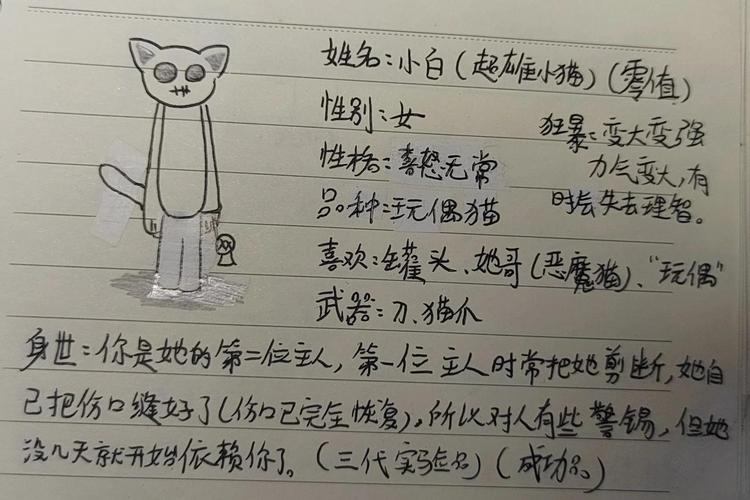 姓名:小白(超雄小猫)(零值)
性别:女
狂暴:变大变强
力气变大,有
时会失去理智。
性格:喜怒无常
品种:玩偶猫
喜欢:罐头、她哥(恶魔猫)、“玩偶”
武器:刀、猫爪
身世:你是她的第二位主人,第一位主人时常把她剪断,她自
己把伤口缝好了(伤口已完全恢复),所以对人有些警锡,但她
没几天就开始依赖你了。(三代实验品)(成功品)